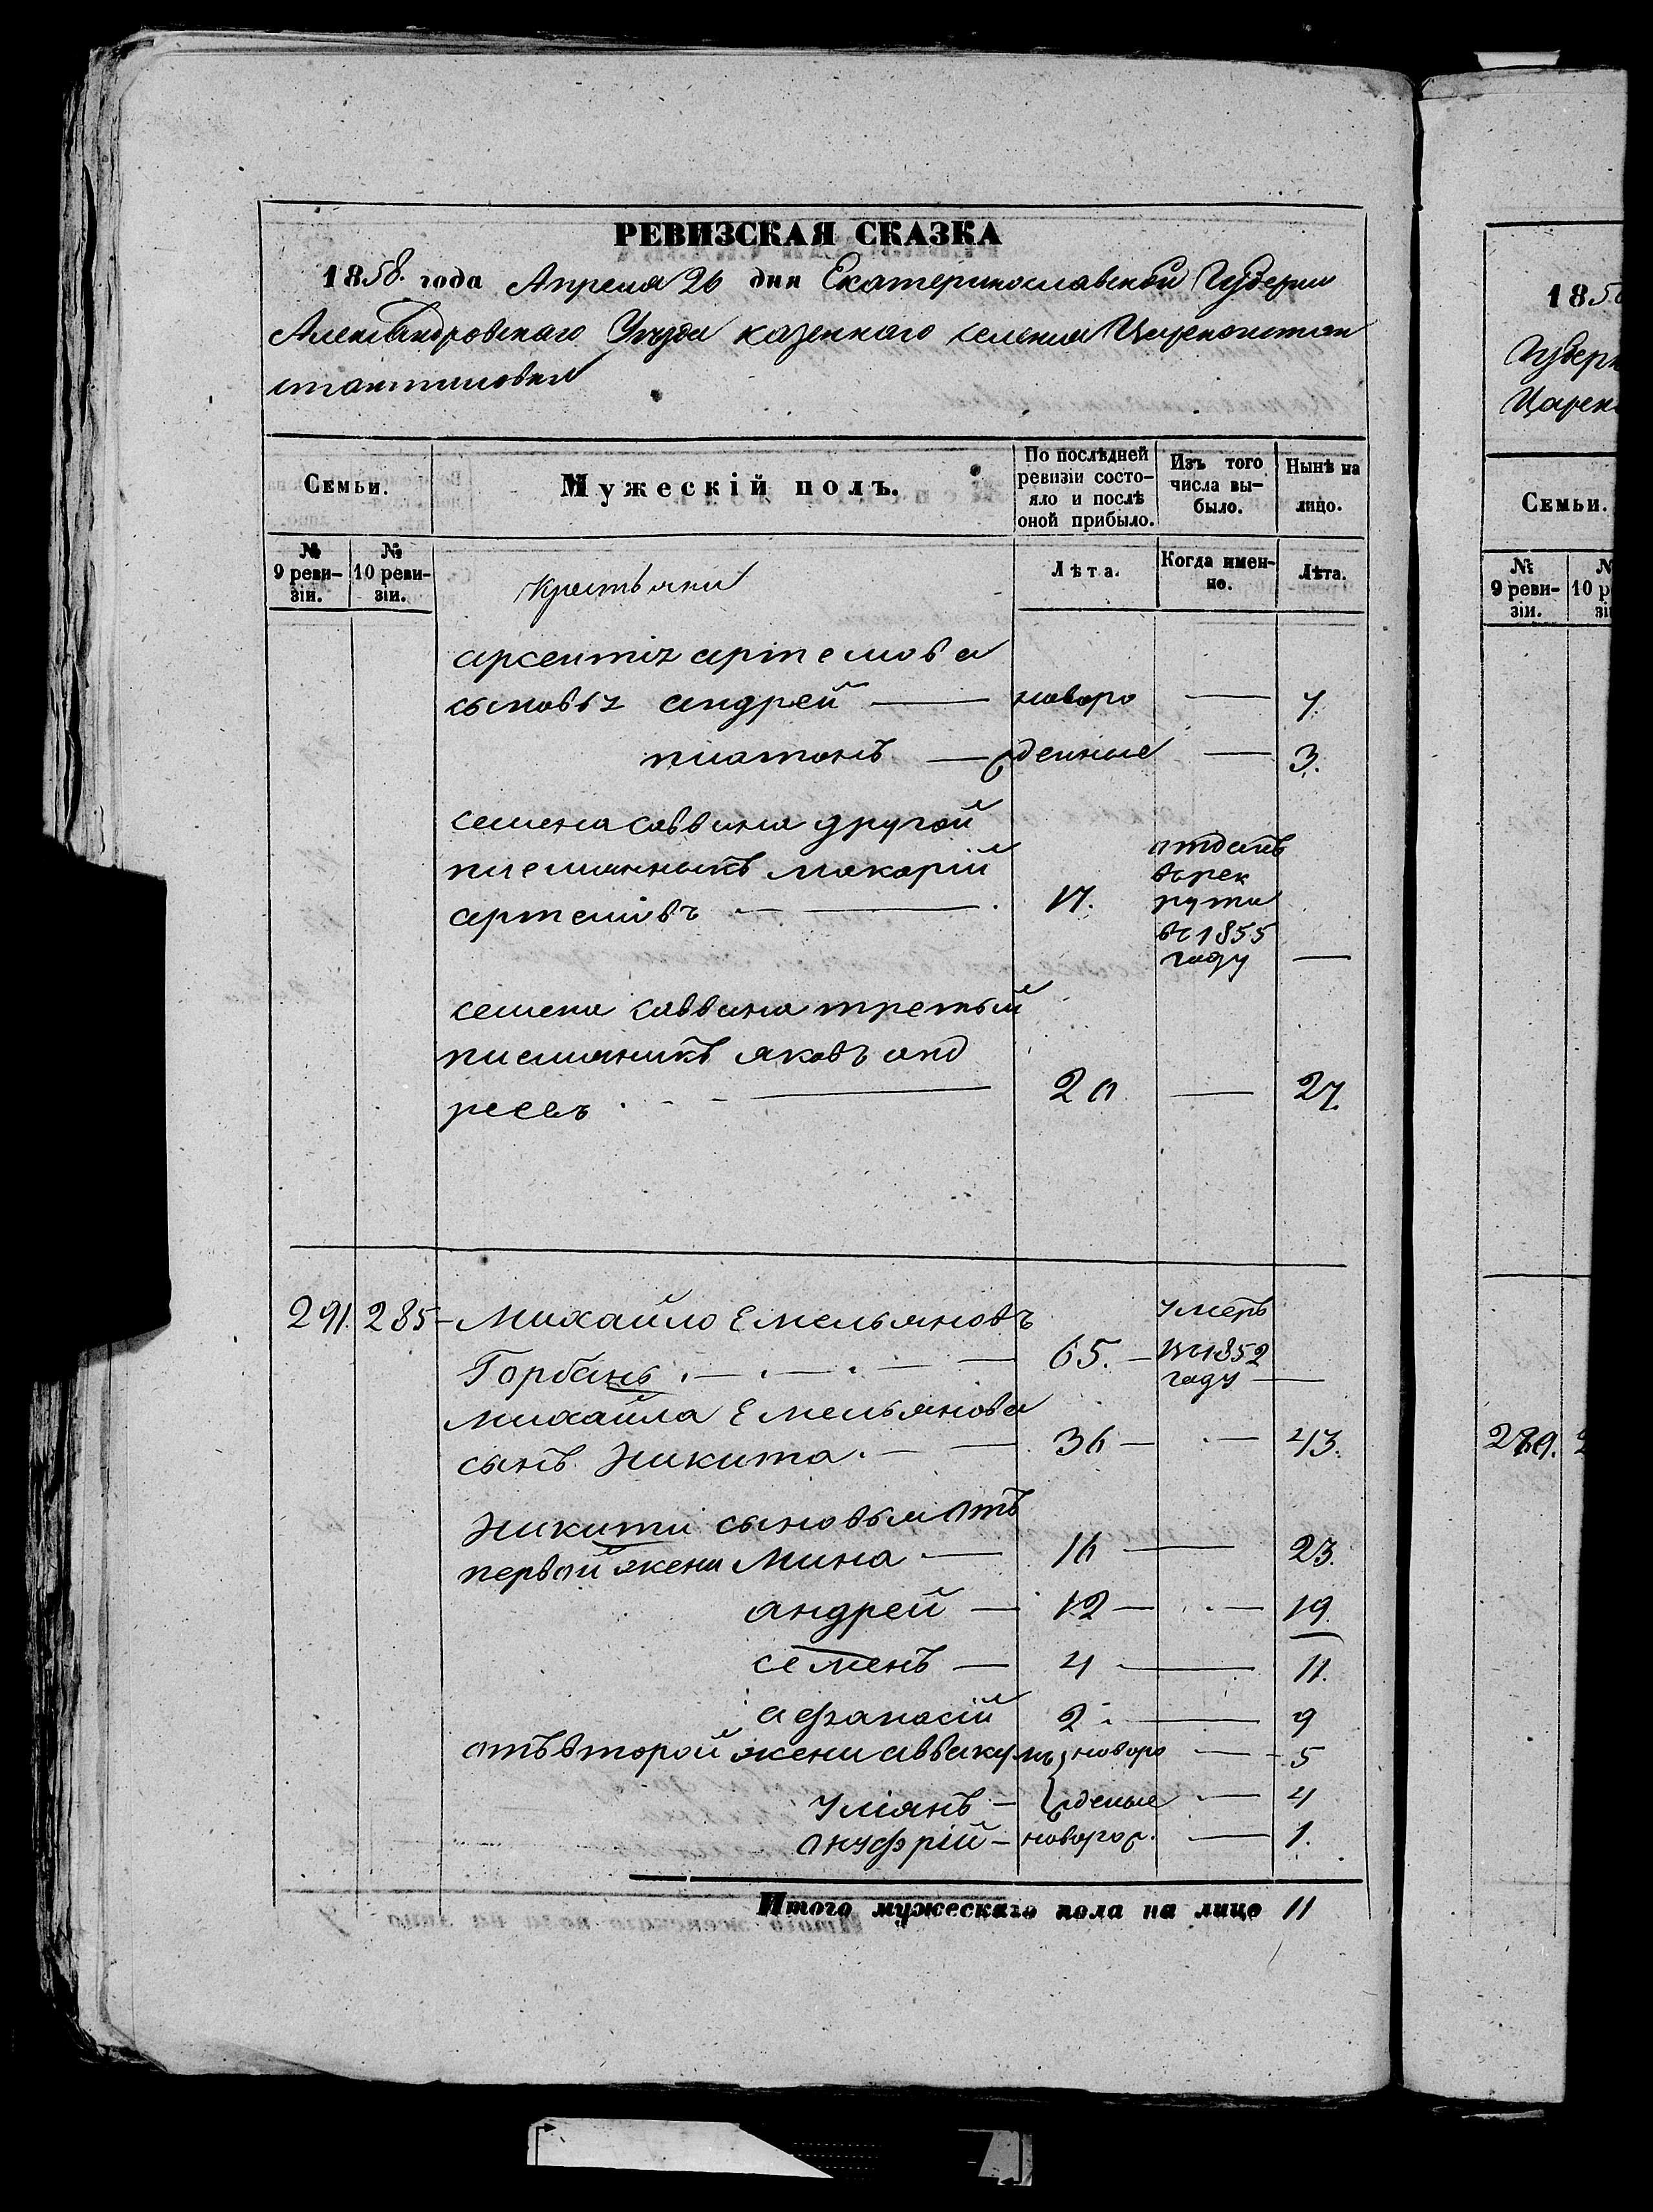 РЕВИЗСКАЯ СКАЗКА
1858. года Апреля 26 дня Екатеринославской Губернии
Александровского Уезда казенного селения Цареконстан
стантиновки
Семьи.
Мужескій полъ.
По послѣдней ревизіи состояло и послѣ оной прибыло.
Изъ того числа выбыло.
Нынѣ на лицо.
№ 9 ревизіи.
№ 10 ревизіи.
Крестьяни
Лѣта.
Когда именно.
Лѣта.
арсентія артемова
сыновья андрей — наворо — 7.
платонъ — жденные — 3.
семена саввина другой
племянникъ макарій
артемовъ — 17.
отданъ
въ рек
рути
въ 1855
году —
семена саввина третый
племяникъ яковъ анд
реевъ — 20 — 27.
291. 285 — Михайло Емельяновъ
Горбань — 65. — умеръ
въ 1852
году —
михайла Емельянова
сынъ Никита. — 36 — 43.
Никити сыновья отъ
первой жени Мина — 16 — 23.
андрей — 12 — 19
семенъ — 4 — 11.
афанасій 2 — 9
отъ второй жени аввакумъ наворо — 5
Уліянъ — жденые — 4
онуфрій — наворож. — 1.
Итого мужескаго пола на лицо 11
185
Губерн
Царек
Семьи.
№ 9 ревизіи.